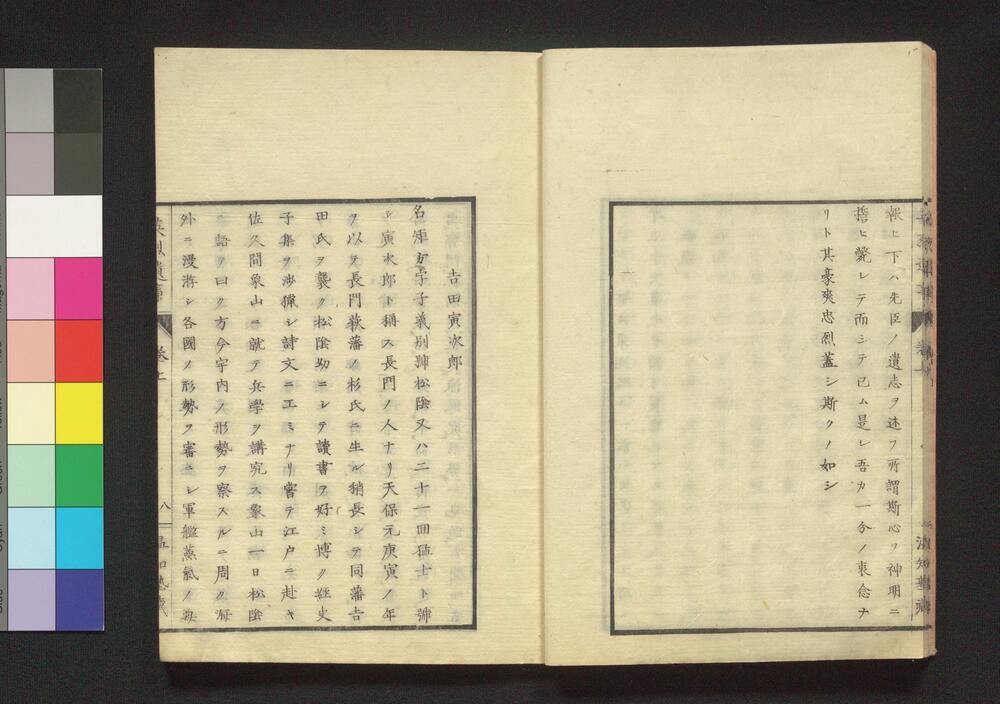 報ヒ下ハ先臣ノ遺志ヲ述フ所謂斯心ヲ神明ニ
誓ヒ斃レテ而シテ已ム是レ吾カ一分ノ衷念ナ
リト其豪爽忠烈蓋シ斯クノ如シ
吉田寅次郎
名矩方字子義別號松陰又ハ二十一回猛士ト號
シ寅次郎ト稱ス長門ノ人ナリ天保元庚寅ノ年
ヲ以テ長門萩藩ノ杉氏ニ生ル稍長シテ同藩吉
田氏ヲ襲ク松陰幼ニシテ讀書ヲ好ミ博ク經史
子集ヲ渉獵シ詩文ニ工ミナリ嘗テ江戸ニ赴キ
佐久間象山ニ就テ兵學ヲ講究ス象山一日松陰
ニ語テ曰ク方今宇内ノ形勢ヲ察スルニ周ク海
外ニ漫游シ各國ノ形勢ヲ審ニシ軍艦蒸氣ノ
卷上
八